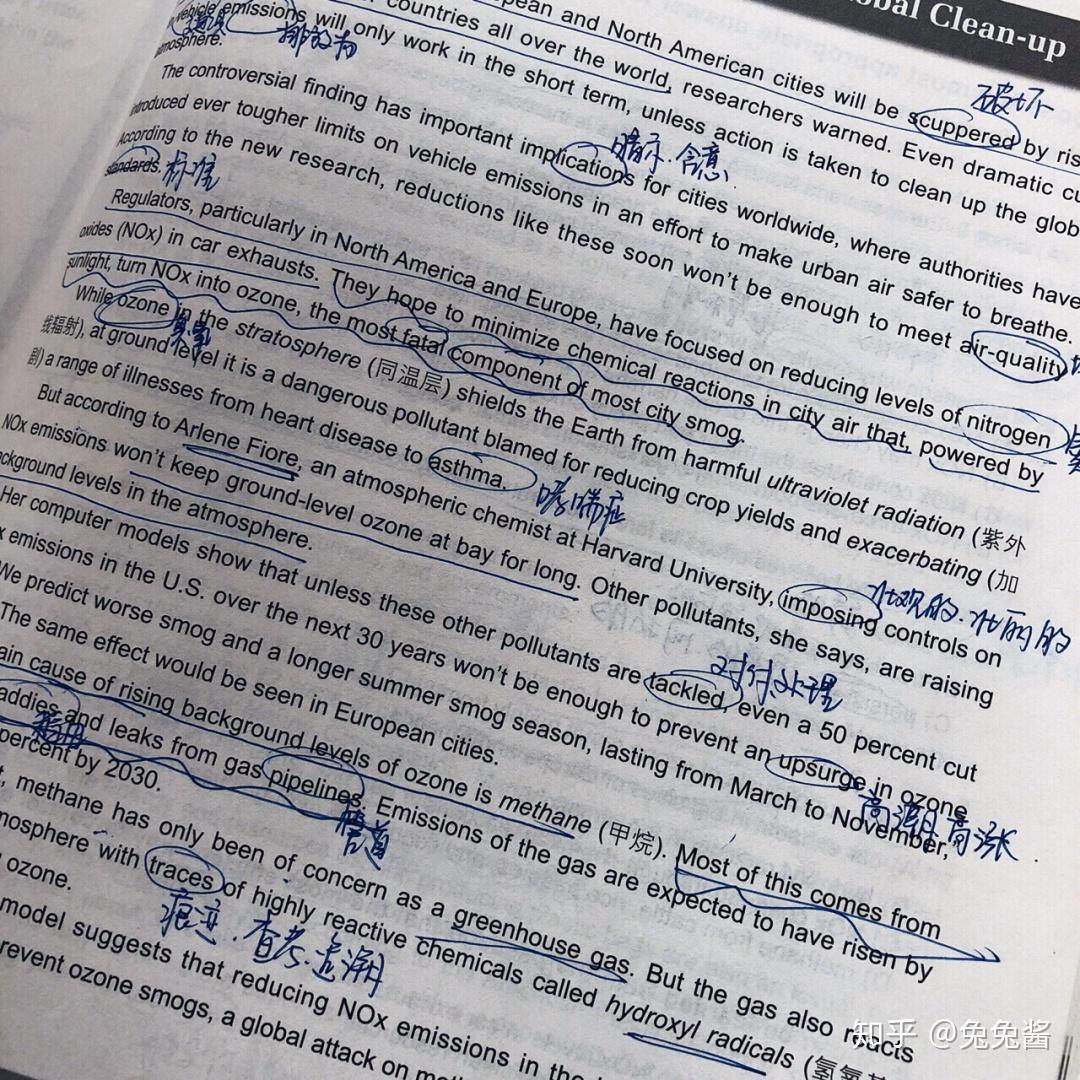 obal Clean-up
pean and North American cities will be scuppered by ris
countries all over the world, researchers warned. Even dramatic cu
vehicle emissions will only work in the short term, unless action is taken to clean up the glob
atmosphere.
排放为
破坏
The controversial finding has important implications for cities worldwide, where authorities have
暗示·含意
introduced ever tougher limits on vehicle emissions in an effort to make urban air safer to breathe.
According to the new research, reductions like these soon won't be enough to meet air-quality
standards.
标准
Regulators, particularly in North America and Europe, have focused on reducing levels of nitrogen
oxides (NOx) in car exhausts. They hope to minimize chemical reactions in city air that, powered by
sunlight, turn NOx into ozone, the most fatal component of most city smog.
While ozone in the stratosphere (同温层) shields the Earth from harmful ultraviolet radiation (紫外
臭氧
线辐射), at ground level it is a dangerous pollutant blamed for reducing crop yields and exacerbating (加
剧) a range of illnesses from heart disease to asthma.
哮喘症
But according to Arlene Fiore, an atmospheric chemist at Harvard University, imposing controls on
壮观的·壮丽的
NOx emissions won't keep ground-level ozone at bay for long. Other pollutants, she says, are raising
ckground levels in the atmosphere.
Her computer models show that unless these other pollutants are tackled, even a 50 percent cut
对付处理
x emissions in the U.S. over the next 30 years won't be enough to prevent an upsurge in ozone.
高潮高涨
We predict worse smog and a longer summer smog season, lasting from March to November,"
The same effect would be seen in European cities.
ain cause of rising background levels of ozone is methane (甲烷). Most of this comes from
addies and leaks from gas pipelines. Emissions of the gas are expected to have risen by
管道
percent by 2030.
t, methane has only been of concern as a greenhouse gas. But the gas also reacts
mosphere with traces of highly reactive chemicals called hydroxyl radicals (氢氧基
痕迹·查考·追溯
ozone.
model suggests that reducing NOx emissions in the
revent ozone smogs, a global attack on meth
知乎 @兔兔酱